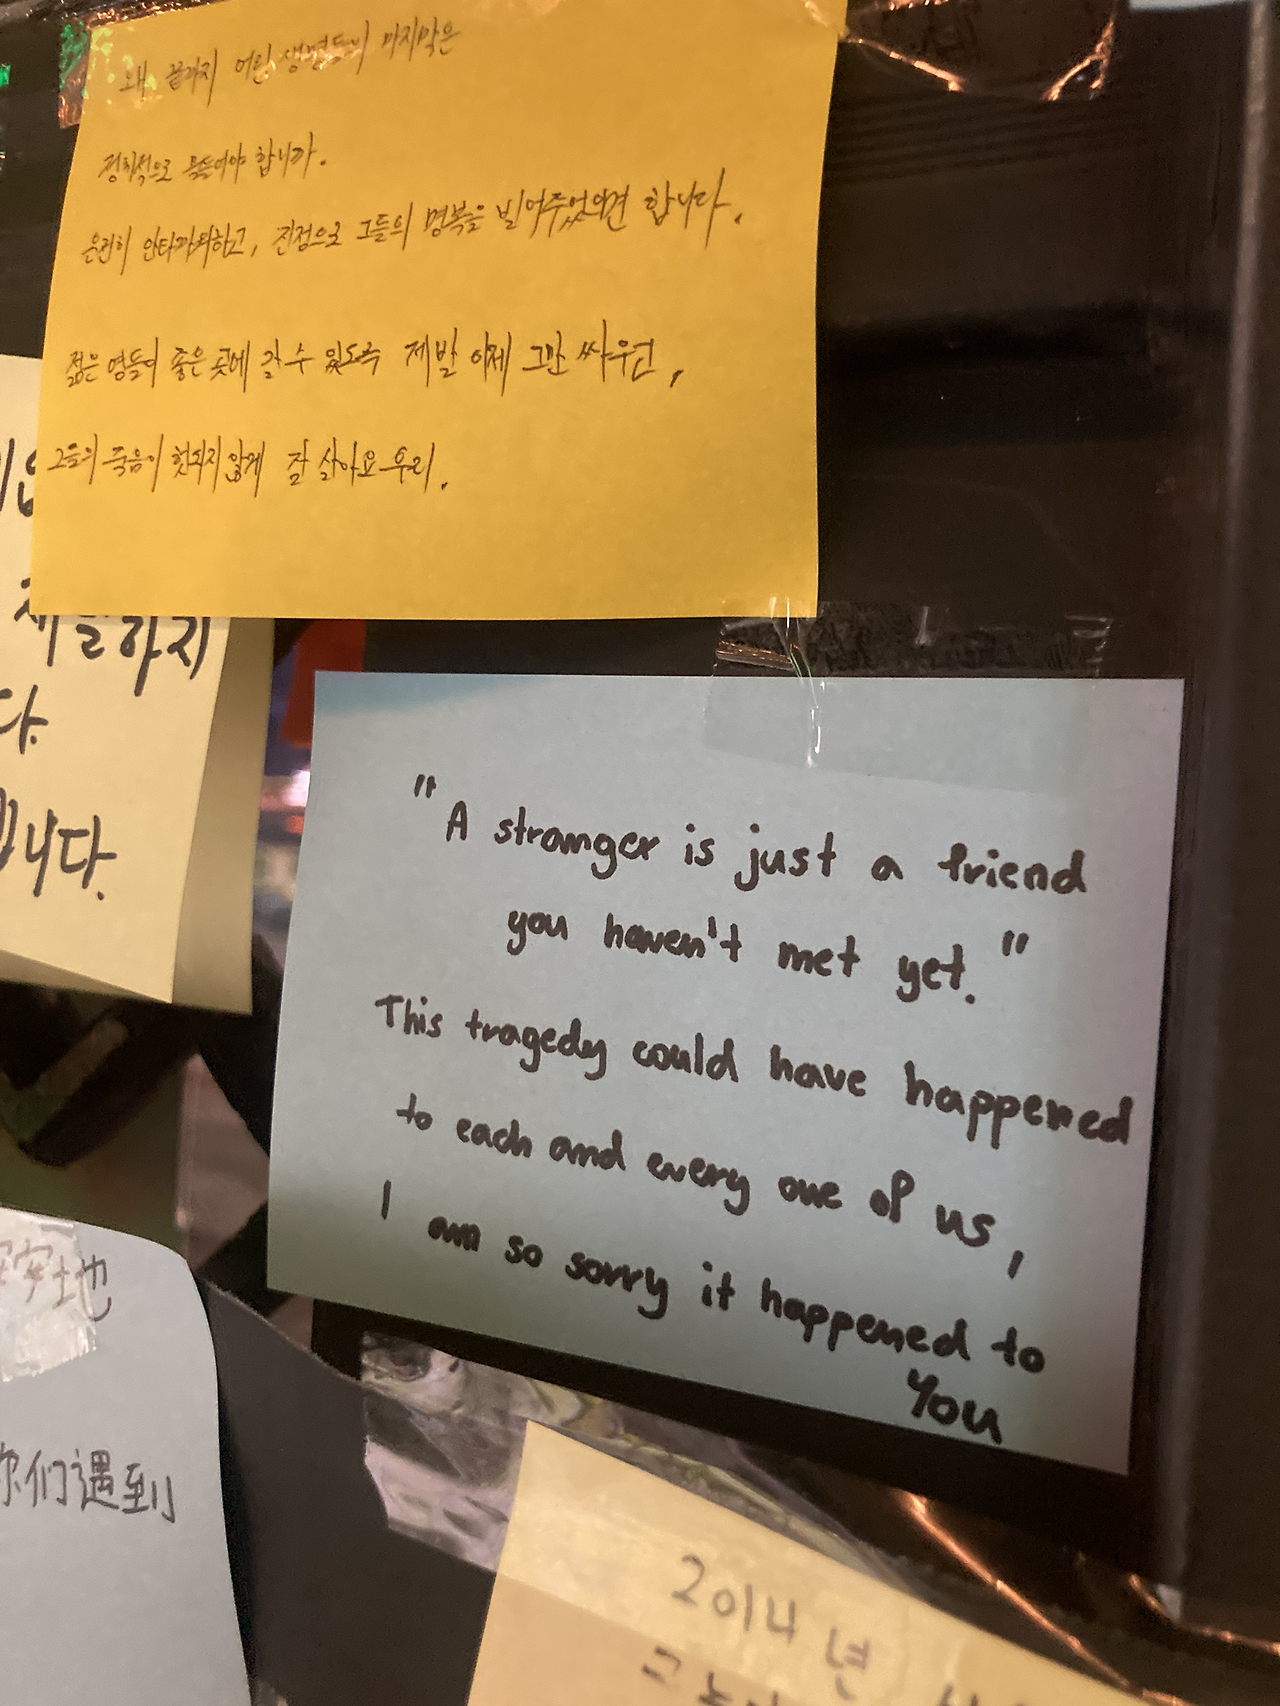 왜 끝까지 어린 생명들의 마지막은
정치적으로 물들어야 합니까.
온전히 안타까워하고, 진정으로 그들의 명복을 빌어주었으면 합니다.
젊은 영들이 좋은 곳에 갈 수 있도록 제발 이제 그만 싸워요,
그들의 죽음이 헛되지 않게 잘 살아요 우리.
하지
다.
니다.
"A stranger is just a friend
you haven't met yet."
This tragedy could have happened
to each and every one of us,
I am so sorry it happened to
You
安地
你们遇到
2014년
그